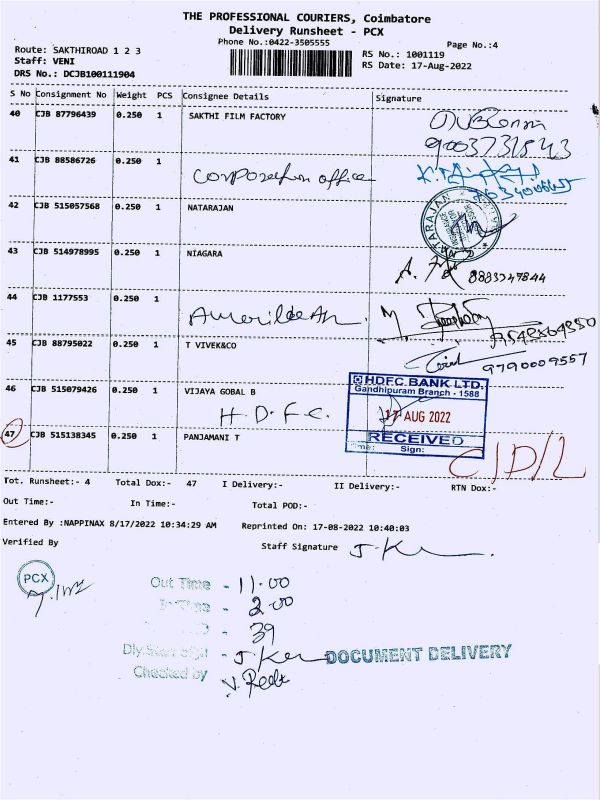 THE PROFESSIONAL COURIERS, Coimbatore
Delivery Runsheet - PCX
Phone No.:0422-3505555
Page No.:4
Route: SAKTHIROAD 1 2 3
Staff: VENI
DRS No.: DCJB100111904
RS No.: 1001119
RS Date: 17-Aug-2022
S No Consignment No Weight PCS Consignee Details Signature
40 CJB 87796439 0.250 1 SAKTHI FILM FACTORY
9003731543
41 CJB 88586726 0.250 1
Corporation office
42 CJB 515057568 0.250 1 NATARAJAN
43 CJB 514978995 0.250 1 NIAGARA
8883347844
44 CJB 1177553 1
45 CJB 88795022 0.250 1 T VIVEK&CO
9790009557
46 CJB 515079426 0.250 1 VIJAYA GOBAL B
H.D.F.C.
HDFC BANK LTD.
Gandhipuram Branch - 1588
17 AUG 2022
RECEIVED
Time: Sign:
47 CJB 515138345 0.250 1 PANJAMANI T
C/D/L
Tot. Runsheet:- 4 Total Dox:- 47 I Delivery:- II Delivery:- RTN Dox:-
Out Time:- In Time:- Total POD:-
Entered By :NAPPINAX 8/17/2022 10:34:29 AM Reprinted On: 17-08-2022 10:40:03
Verified By Staff Signature
PCX
Out Time - 11.00
In Time - 2.00
- 39
DOCUMENT DELIVERY
Checked by